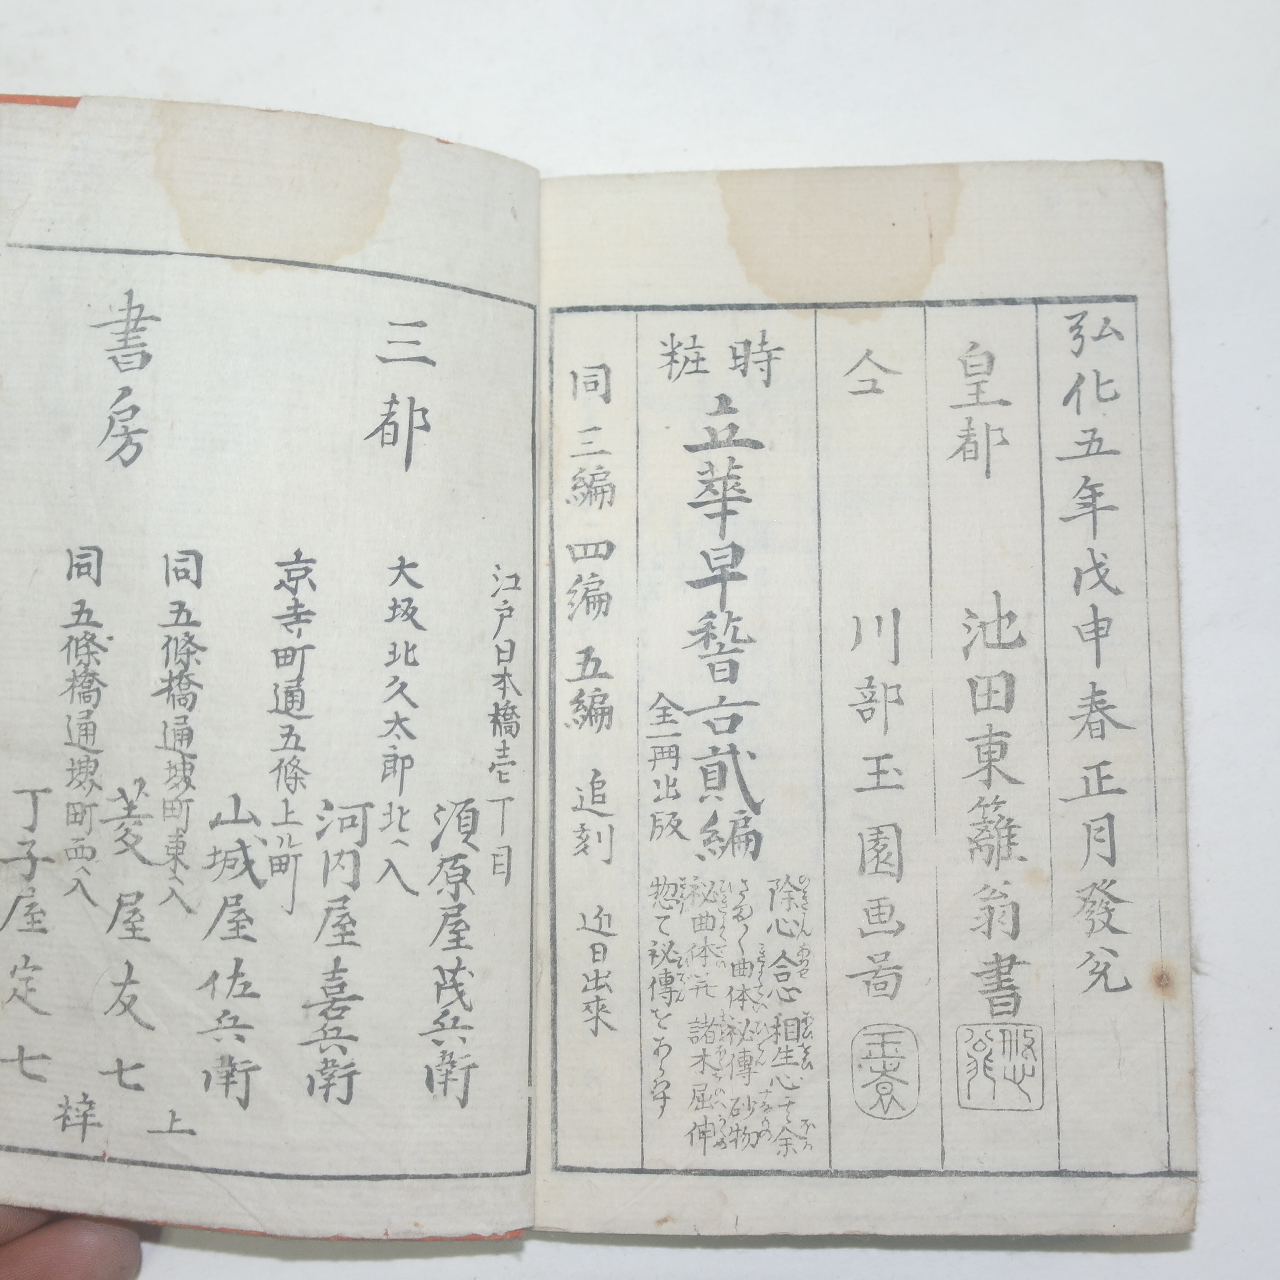 弘化五年戊申春正月發兌
皇都 池田東籬翁書
仝 川部玉園画啚
時粧
立華早稽古貳編
全一冊出版
除心 合心 相生心 其余
さま〲 曲体秘傳 砂物
秘曲体并 諸木屈伸
惣て秘傳を
同三編 四編 五編 追刻 近日出來
三都
書房
江戸日本橋壱丁目
須原屋茂兵衛
大坂北久太郎北ヘ入
河内屋喜兵衛
京寺町通五條上ル町
山城屋佐兵衛
同五條橋通堺町東ヘ入
菱屋友七
同五條橋通堺町西ヘ入
丁子屋定七
上梓